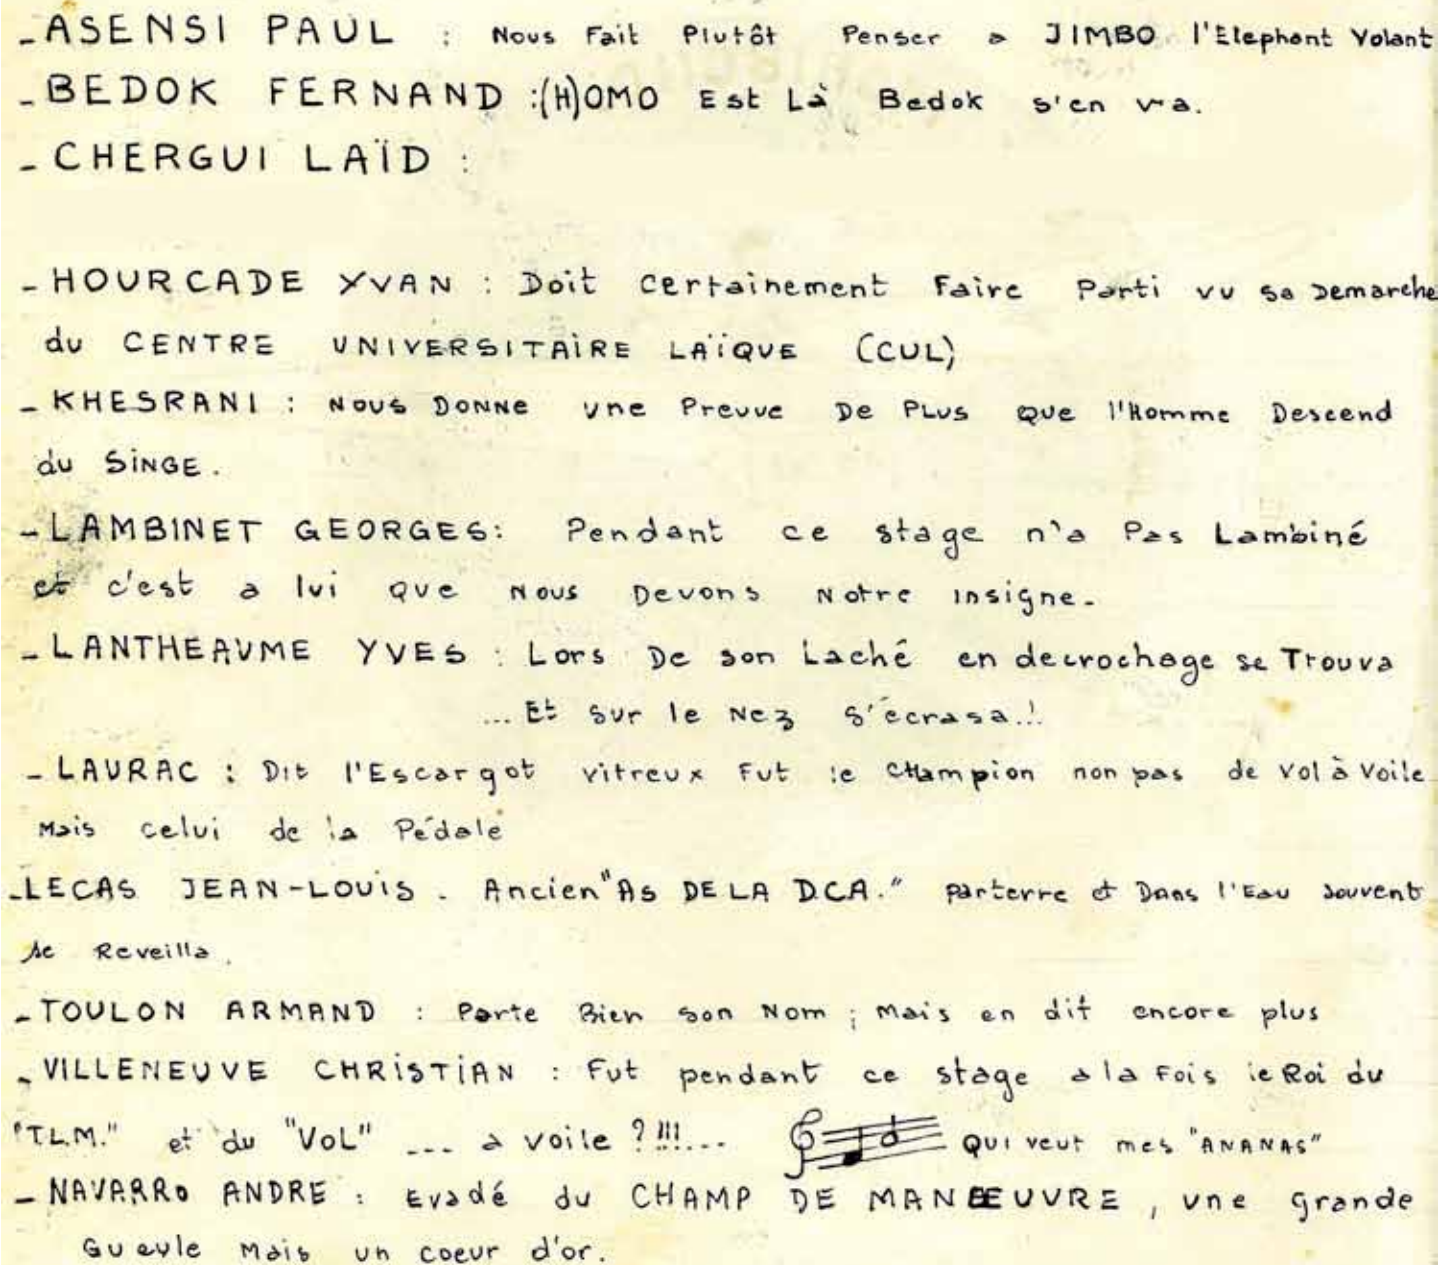 - ASENSI PAUL : Nous Fait Plutôt Penser a JIMBO l'Elephant Volant
- BEDOK FERNAND :(H)OMO Est Là Bedok s'en va.
- CHERGUI LAÏD :
- HOURCADE YVAN : Doit certainement Faire Parti vu sa Demarche
du CENTRE UNIVERSITAIRE LAÏQUE (CUL)
- KHESRANI : NOUS DONNE une Preuve De PLUS QUE l'Homme Descend
du SINGE.
- LAMBINET GEORGES: Pendant ce stage n'a Pas Lambiné
et c'est a lui que Nous Devons Notre insigne.
- LANTHEAUME YVES : Lors De son Laché en decrochage se Trouva
... Et sur le Nez s'écrasa..!
- LAURAC : Dit l'Escargot vitreux Fut le CHampion non pas de Vol à Voile
Mais celui de la Pédale
- LECAS JEAN-LOUIS . Ancien "As DE LA D.C.A." parterre et Dans l'Eau souvent
se Reveilla.
- TOULON ARMAND : Porte Bien son Nom ; Mais en dit encore plus
- VILLENEUVE CHRISTIAN : Fut pendant ce stage a la Fois le Roi du
"T.L.M." et du "VOL" ... a voile ? !!!... Qui veut mes "ANANAS"
- NAVARRO ANDRE : Evadé du CHAMP DE MANŒUVRE, une grande
Gueule Mais un coeur d'or.